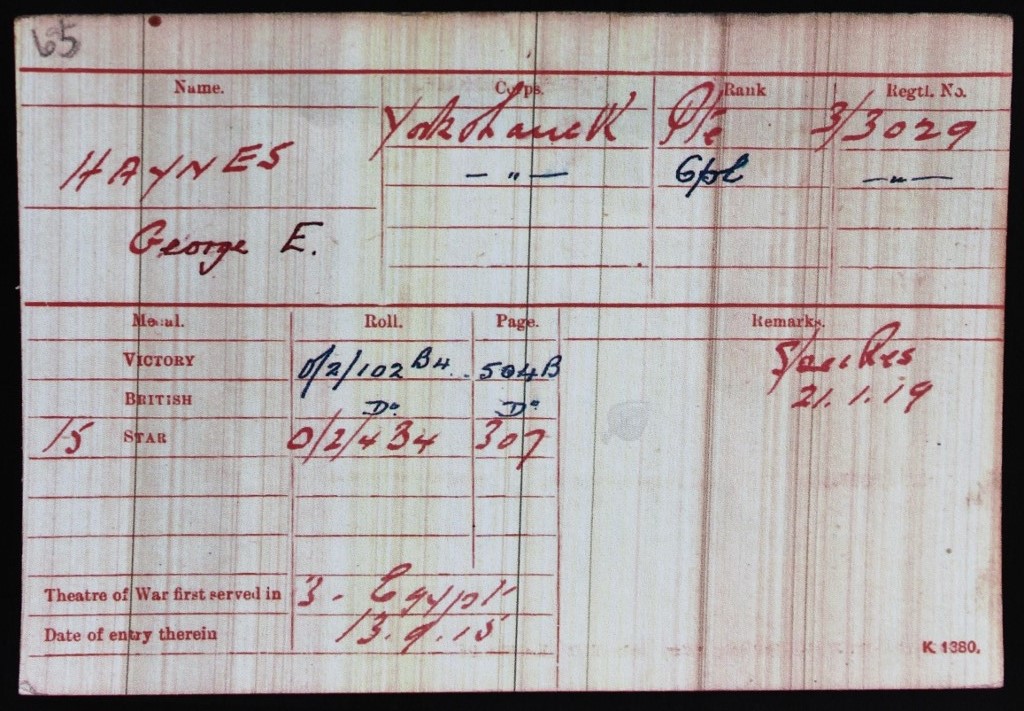 65
Name. Corps. Rank Regtl. No.
HAYNES York & Lanc R Pte 3/3029
— " — Cpl — " —
George E.
Medal. Roll. Page. Remarks.
VICTORY O/2/102 B4 504B
BRITISH Do Do
15 STAR O/2/4 B4 307
21.1.19
Theatre of War first served in 3 - Egypt
Date of entry therein 13.9.15
K. 1380.